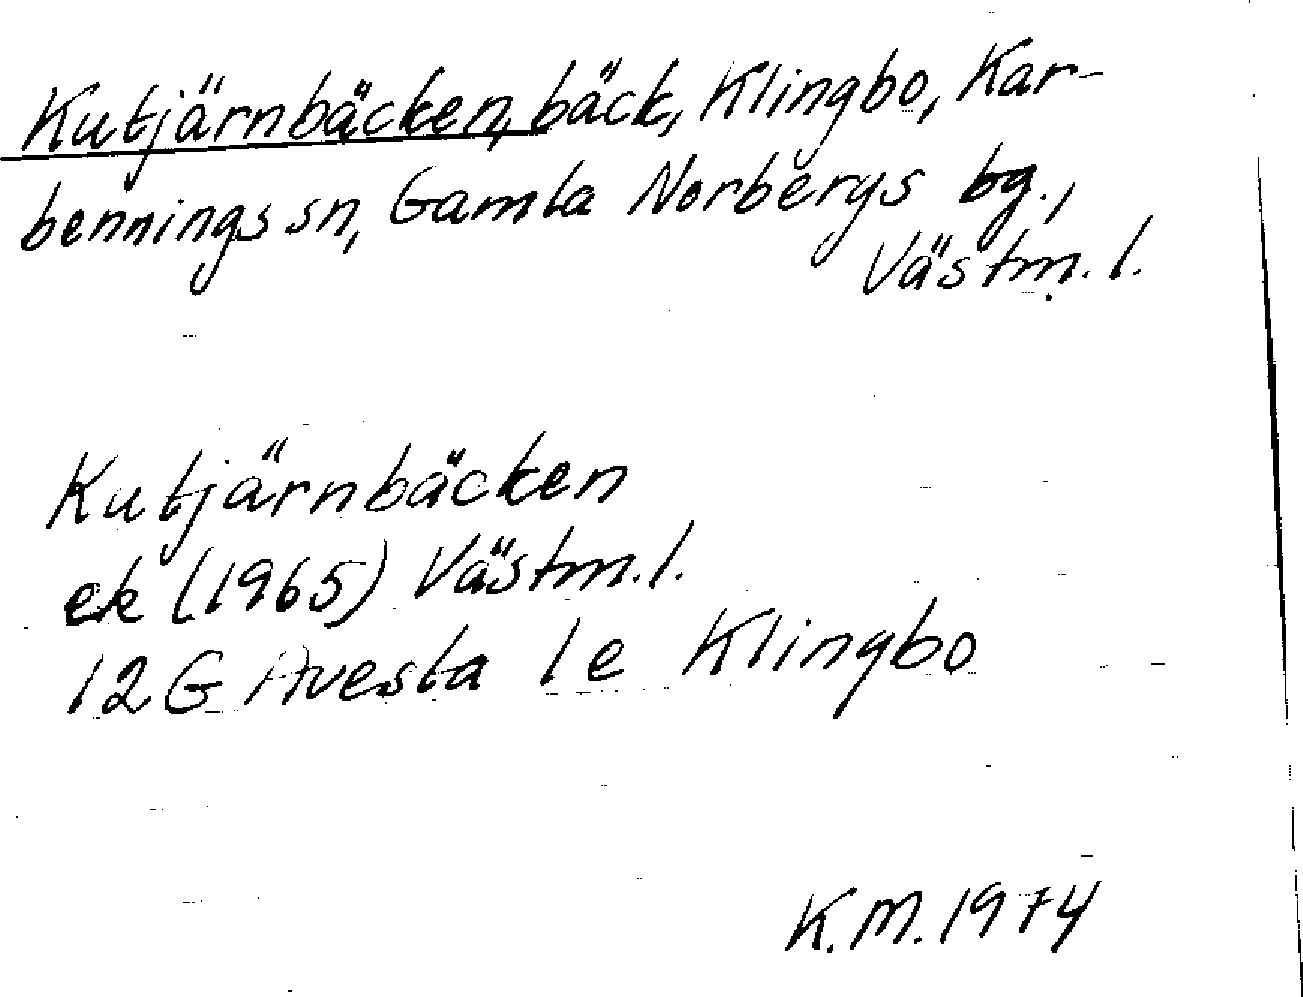 Kutjärnbäcken, bäck, Klingbo, Kar-
bennings sn, Gamla Norbergs bg.,
Västm. l.
Kutjärnbäcken
ek (1965) Västm. l.
12G Avesta 1e Klingbo
K.M. 1974